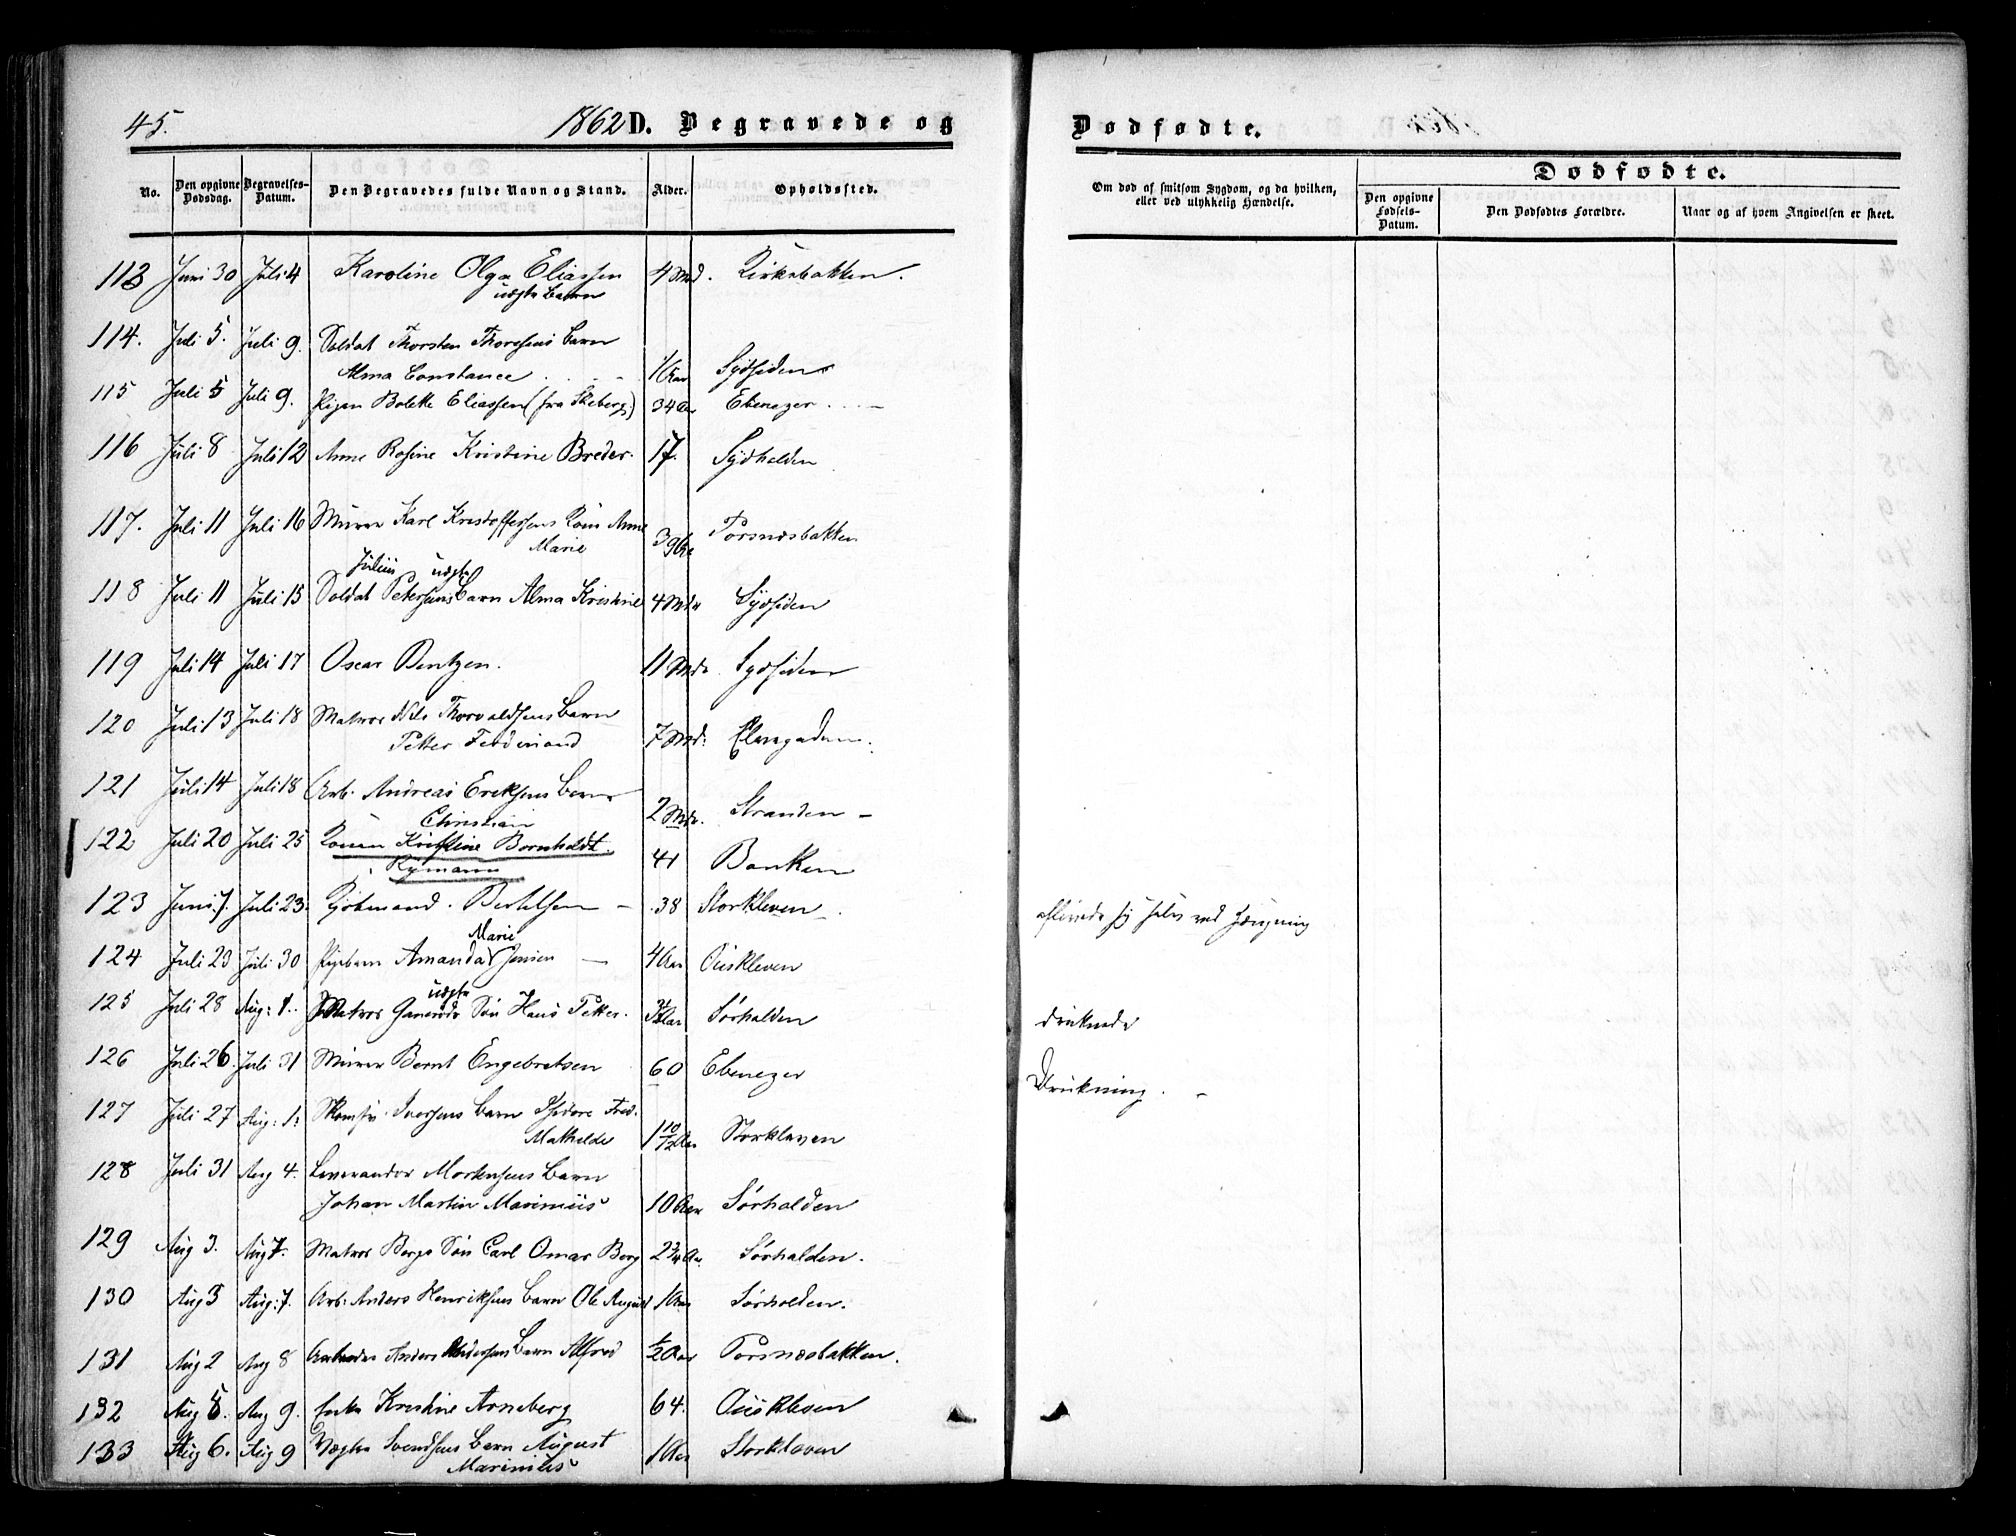 45.
1862 D. Begravede og
Dødfødte.
No.
Den opgivne Dødsdag.
Begravelses-Datum.
Den Begravedes fulde Navn og Stand.
Alder.
Opholdssted.
Om død af smitsom Sygdom, og da hvilken, eller ved ulykkelig Hændelse.
Dødfødte.
Den opgivne Fødsels-Datum.
Den Dødfødtes Forældre.
Naar og af hvem Angivelsen er skeet.
113 Juni 30 Juli 4 Karoline Olga Eliassen 4 Md. Kirkebakken.
uægte Barn
114. Juli 5. Juli 9. Soldat Thorsten Thoresens Barn
Alma Constance 1 Aar Sydsiden
115 Juli 5 Juli 9. Pigen Bolette Eliassen (fra Skeberg) 34 Aar Ebenezer
116 Juli 8 Juli 12 Anne Rosine Kristine Breder. 17. Sydhalden
117. Juli 11 Juli 16 Murer Karl Kristoffersens Kone Anne
Marie 39 Aar Torsnæsbakken
Julius uægte
118 Juli 11 Juli 15 Soldat Petersens Barn Alma Kristine 4 Mdr Sydsiden
119 Juli 14 Juli 17 Oscar Bentzen. 11 Mdr. Sydsiden
120 Juli 13 Juli 18 Matros Nils Thorvaldsens Barn
Petter Ferdinand 7 Md. Elvegaden.
121 Juli 14 Juli 18 Arb. Andreas Eriksens Barn
Christian 2 Mdr. Stranden
122 Juli 20 Juli 25 Konen Kristine Bornholdt. 41 Banken
Rymann
123 Juni 7. Juli 23. Kjøbmand Bertelsen 38 Storkleven
aflivede sig selv ved Hængning
Marie
124 Juli 23 Juli 30 Pigebarn Amanda Jensen 4 Aar Ouskleven
uægte
125 Juli 28 Aug: 1. Matros Ganerøds Søn Hans Petter. Aar Sørhalden
druknede
126 Juli 26. Juli 31 Murer Bernt Engebretsen 60 Ebenezer
Drukning.
127 Juli 27 Aug: 1. Iversens Barn Fred.
Mathilde 1 10/12 Aar Storkleven
128 Juli 31 Aug 4. Leverandør Mortensens Barn
Johan Martin Marinius 10 Aar Sørhalden
129 Aug 3. Aug 7. Matros Bergs Søn Carl Omar Berg 2 3/4 Aar Sørhalden.
130 Aug 3 Aug: 7. Arb: Anders Henriksens Barn Ole August 1 Aar Sørhalden.
131 Aug 2 Aug 8 Arbeider Anders Pedersens Barn Alfred 1/2 Aar Torsnæsbakken.
132 Aug 5. Aug 9. Enke Kristine Arneberg 64. Ouskleven
133 Aug 6. Aug 9 Vægter Svendsens Barn August
Marinius 1 Aar Storkleven